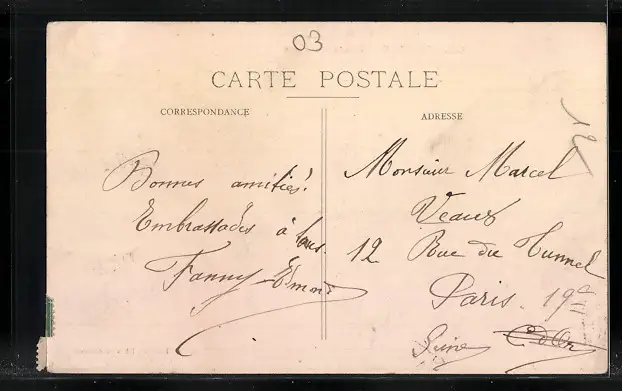 03
CARTE POSTALE
CORRESPONDANCE
ADRESSE
12
Bonnes amitiés!
Embrassades à tous.
Fanny Edmond
Monsieur Marcel
Veaux
12 Rue du Tunnel
Paris. 19e
Seine